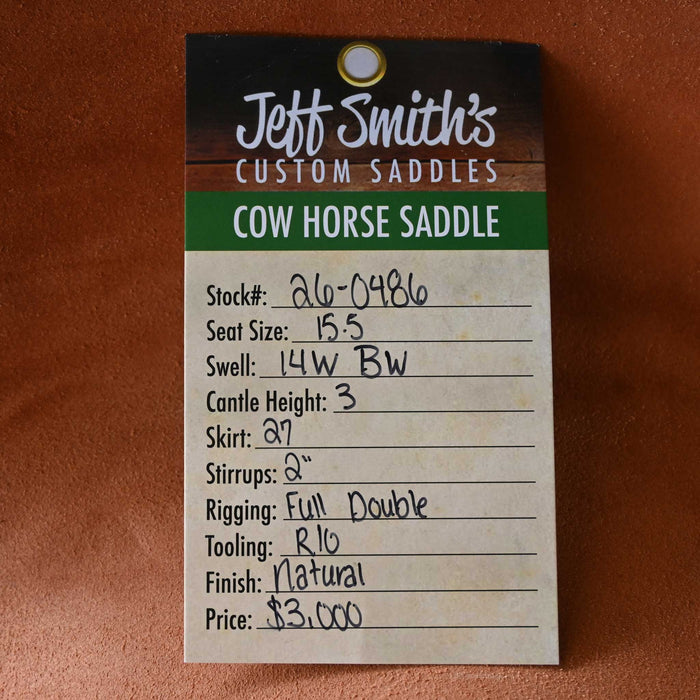 Jeff Smith's
CUSTOM SADDLES
COW HORSE SADDLE
Stock#: 26-0486
Seat Size: 15.5
Swell: 14W BW
Cantle Height: 3
Skirt: 27
Stirrups: 2"
Rigging: Full Double
Tooling: R10
Finish: Natural
Price: $3,000